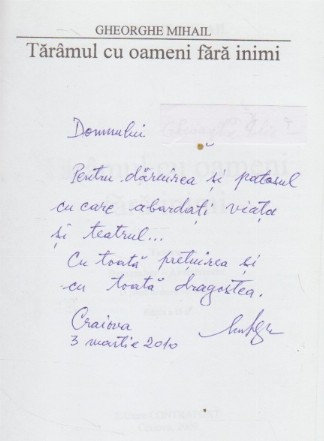 GHEORGHE MIHAIL
Tărâmul cu oameni fără inimi
Domnului
Pentru dăruirea și patosul
cu care abordați viața
și teatrul...
Cu toată prețuirea și
cu toată dragostea.
Craiova
3 martie 2010